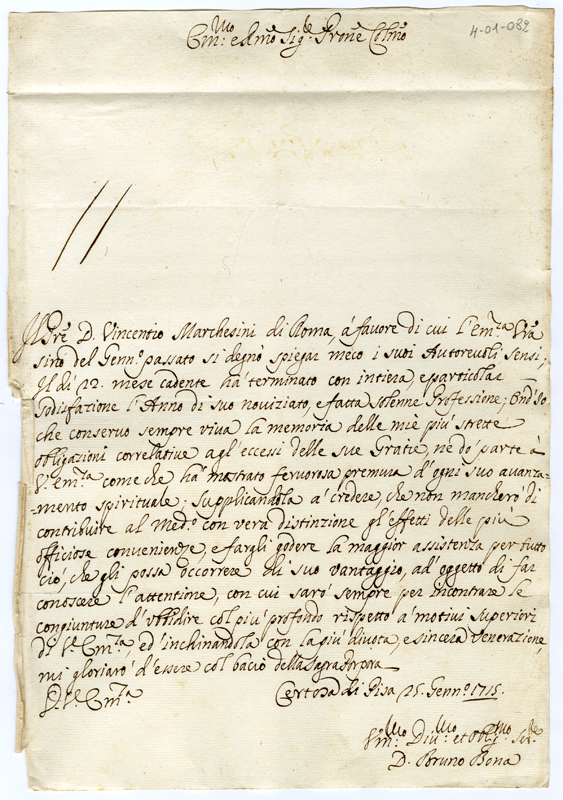 4-01-082
Em.mo e Rmo Sig.r Prone Colmo
Il Pre D. Vincentio Marchesini di Roma, á favore di cui l'Em.za Vra
sino del Genn.o passato si degnò spiegar meco i suoi Autorevoli sensi;
Il di 12. mese cadente ha' terminato con intiera, e particolar
sodisfazione l'Anno di suo noviziato, e fatta solenne Professione; Ond'io
che conservo sempre viva la memoria delle mie più strette
obligazioni correlative agl'eccessi delle sue Gratie, ne dó parte à
V.a em.za come che há mostrato fervorosa premura d'ogni suo avanza-
-mento spirituale; supplicandola a' credere, che non mancheró di
contribuire al Med.o con vera distinzione gl'effetti delle più
officiose convenienze, e fargli godere la maggior assistenza per tutto
ciò, che gli possa occorrere di suo vantaggio, ad'oggetto di far
conoscere l'attentione, con cui saró sempre per incontrare le
congiunture d'ubbidire col più profondo rispetto a' motivi superiori
di V.a Em.za, ed'inchinandola con la più divota, e sincera Venerazione,
mi gloriaró d'essere col bacio della Sagra Porpora
D. V.a Em.za Certosa di Pisa 25. Genn.o 1715.
Vm.mo Div.mo et Obbl.mo Ser.re
D. Bruno Bona